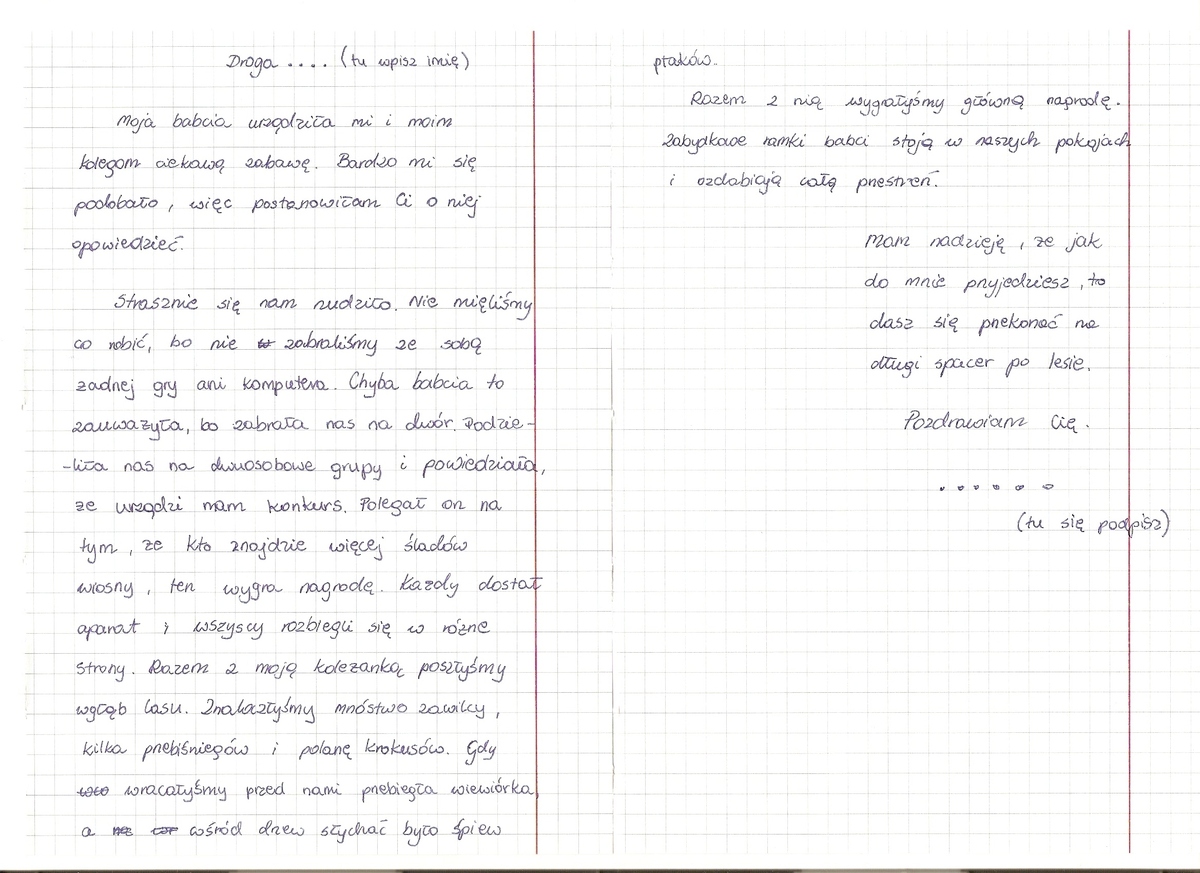 Droga .... (tu wpisz imię)
Moja babcia urządziła mi i moim
kolegom ciekawą zabawę. Bardzo mi się
podobało, więc postanowiłam Ci o niej
opowiedzieć.
Strasznie się nam nudziło. Nie mięliśmy
co robić, bo nie zabraliśmy ze sobą
żadnej gry ani komputera. Chyba babcia to
zauważyła, bo zabrała nas na dwór. Podzie-
-liła nas na dwuosobowe grupy i powiedziała,
że urządzi nam konkurs. Polegał on na
tym, że kto znajdzie więcej śladów
wiosny, ten wygra nagrodę. Każdy dostał
aparat i wszyscy rozbiegli się w różne
strony. Razem z moją koleżanką poszłyśmy
wgłąb lasu. Znalazłyśmy mnóstwo zawilcy,
kilka przebiśniegów i polanę krokusów. Gdy
wracałyśmy przed nami przebiegła wiewiórka,
a wśród drzew słychać było śpiew
ptaków.
Razem z nią wygrałyśmy główną nagrodę.
Zabytkowe ramki babci stoją w naszych pokojach
i ozdabiają całą przestrzeń.
Mam nadzieję, że jak
do mnie przyjedziesz, to
dasz się przekonać na
długi spacer po lesie.
Pozdrawiam Cię.
......
(tu się podpisz)